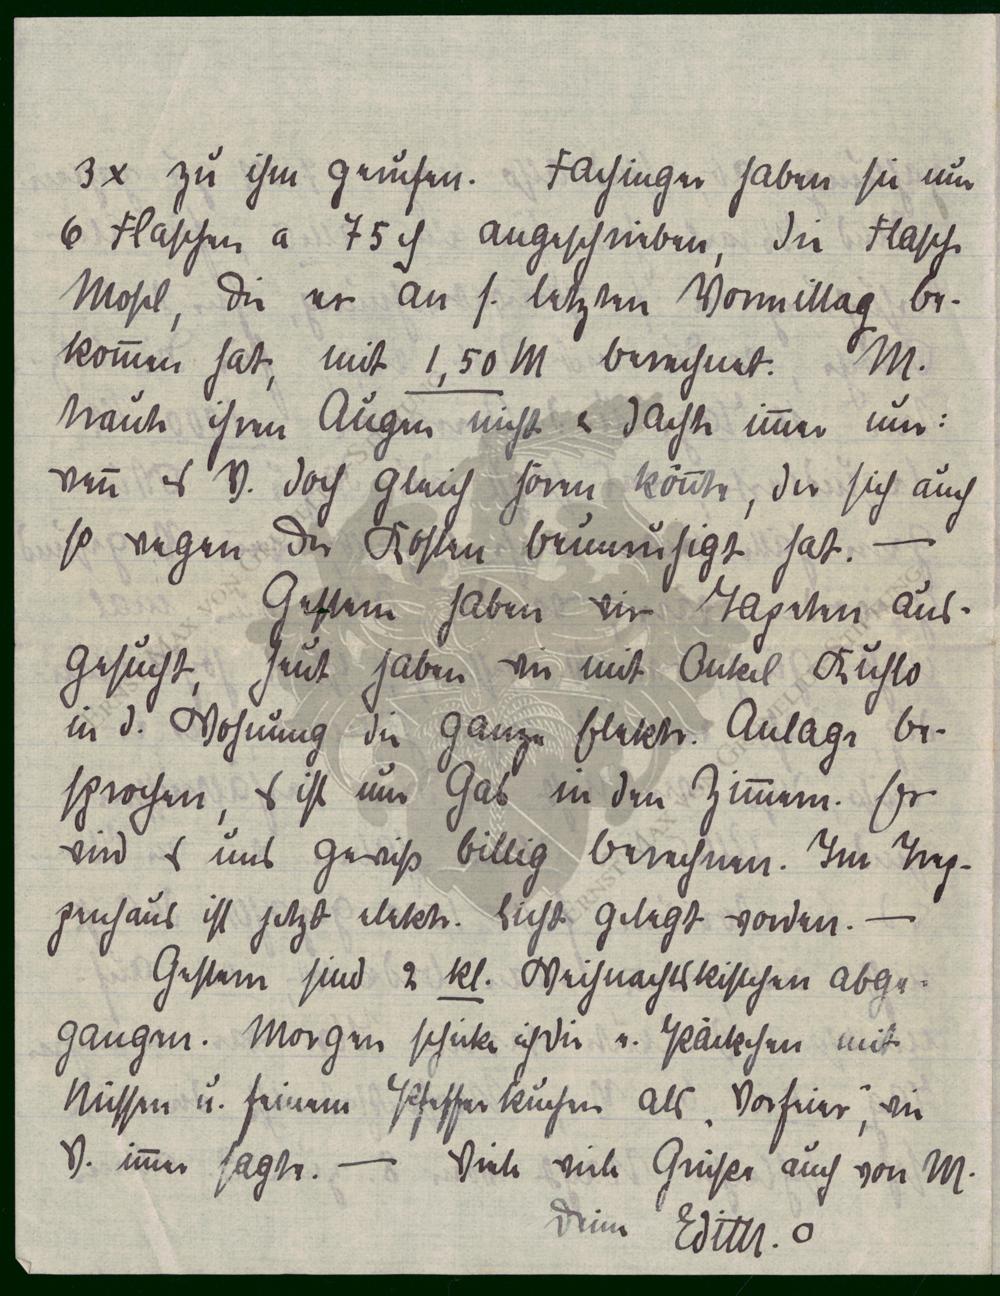 3x zu ihm gerufen. Fachinger haben sie nur
6 Flaschen a 75 ₰ angeschrieben, die Flasche
Mosel, die er an s. letzten Vormittag be-
kom̅en hat, mit 1,50 M berechnet. M.
traute ihren Augen nicht & dachte im̅er nur:
wen̅ es V. doch gleich hören kön̅te, der sich auch
so wegen der Kosten beunruhigt hat. —
Gestern haben wir Tapeten aus-
gesucht, heut haben wir mit Onkel Kuhlo
in d. Wohnung die ganze elektr. Anlage be-
sprochen, es ist nur Gas in den Zim̅ern. Er
wird es uns gewiß billig berechnen. Im Trep-
penhaus ist jetzt elektr. Licht gelegt worden. —
Gestern sind 2 kl. Weihnachtskistchen abge-
gangen. Morgen schicke ich Dir e. Päckchen mit
Nüssen u. feinem Pfefferkuchen als „Vorfeier“, wie
V. im̅er sagte. — Viele viele Grüße auch von M.
Deine Edith.